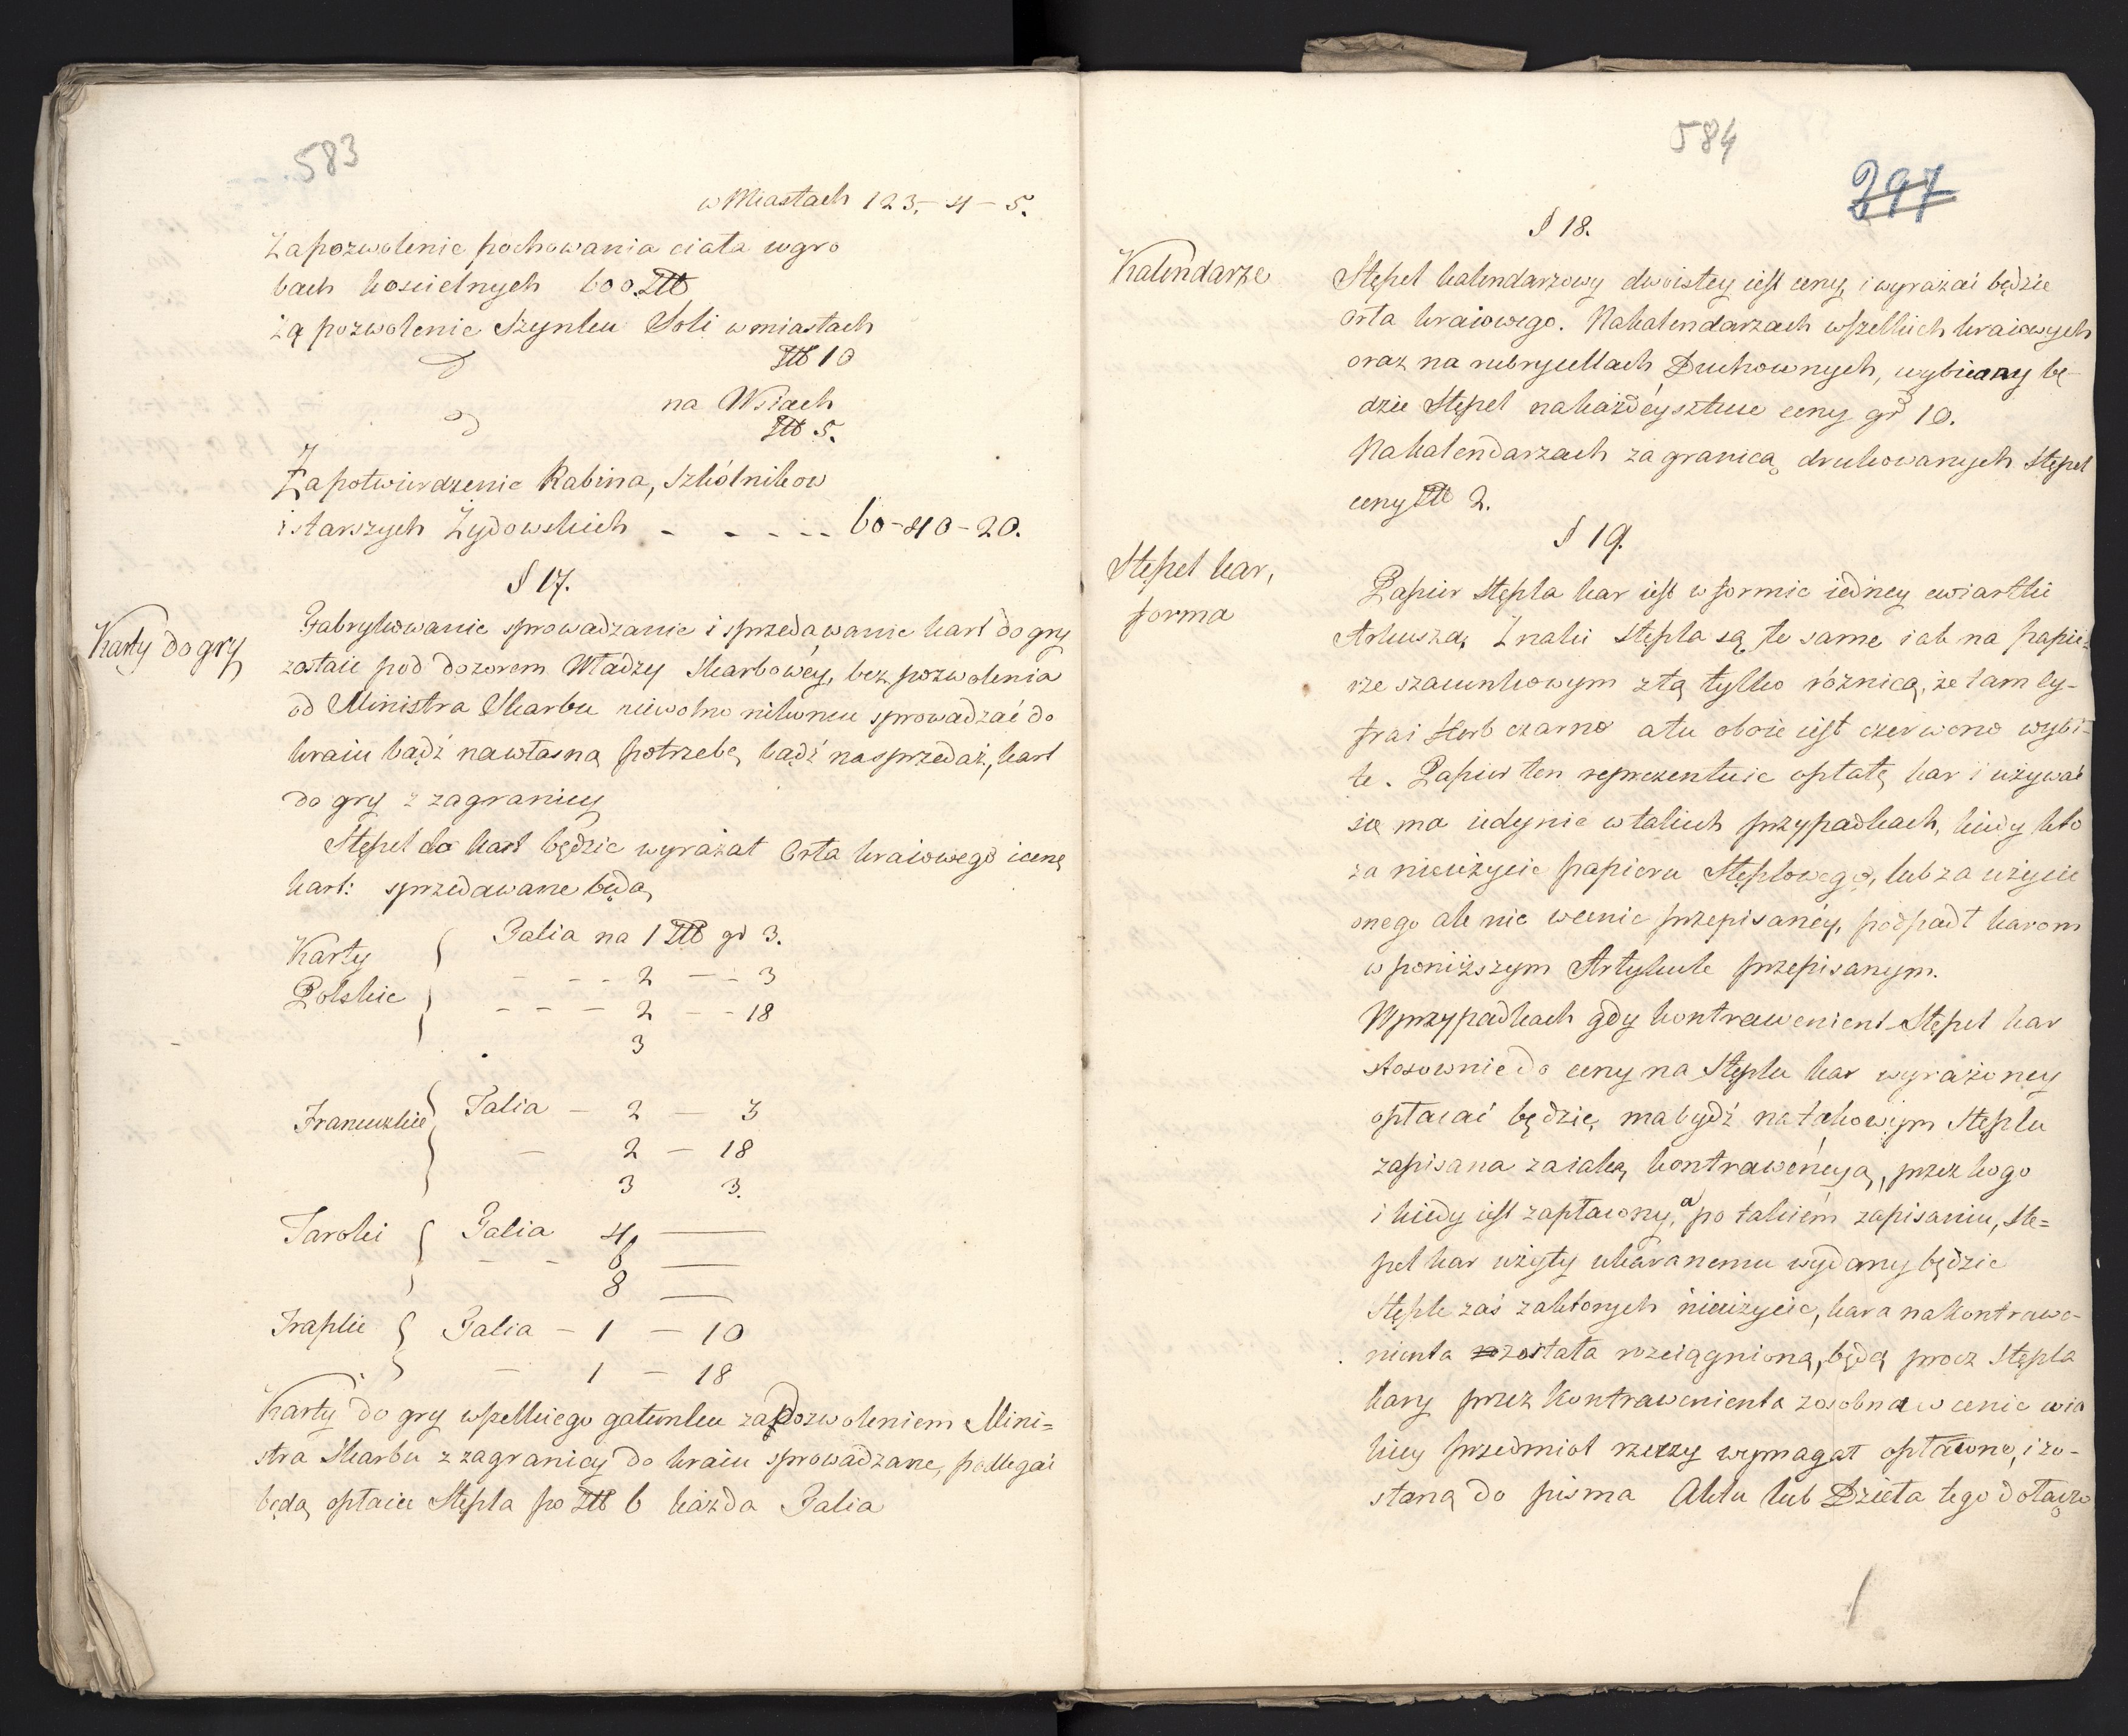 583
w Miastach 123.-4-5.
Za pozwolenie pochowania ciała w gro
bach koscielnych 600. Zł
Zą pozwolenie Szynku Soli w miastach
D Zł 10
na Wsiach
D Zł 5.
Za potwierdzenie Rabina, Szkólnikow
i starszych Żydowskich - - - - - 60-40-20.
§ 17.
Karty do gry
Fabrykowanie sprowadzanie i sprzedawanie kart do gry
zostaie pod dozorem Władzy Skarbowéy, bez pozwolenia
od Ministra Skarbu niewolno nikomu sprowadzać do
kraiu bądź na własną potrzebę, bądź na sprzedaż, kart
do gry z zagranicy
Stępel do kart będzie wyrażał Orła kraiowego i cenę
kart: sprzedawane będą
Karty Polskie { Talia na 1 Zł gr 3.
- - - 2 - - 3
- - - 2 - - 18
3
Francuzkie { Talia - 2 - 3
- 2 - 18
3 3.
Taroki { Talia 4 —
- - 6 —
8 —
Traplie { Talia - 1 - 10
- 1 - 18
Karty do gry wszelkiego gatunku za pozwoleniem Mini=
stra Skarbu z zagranicy do kraiu sprowadzane, podlegać
będą opłacie Stępla po Zł 6 każda Talia
584
297
§ 18.
Kalendarze
Stępel kalendarzowy dwoistey iest ceny, i wyrażać będzie
orła kraiowego. Na kalendarzach wszelkich kraiowych
oraz na rubrycellach Duchownych, wybieany bę-
dzie Stępel na każdéy sztuce ceny gr 10.
Na kalendarzach za granicą drukowanych Stępel
ceny Zł 2.
§ 19.
Stępel kar,
forma
Papier Stępla kar iest w formie iedney cwiartki
Arkusza, Znaki Stępla są te same iak na papie-
rze szacunkowym z tą tylko różnicą, że tam cy-
fra i Herb czarno a tu oboie iest czerwono wybi-
te. Papier ten reprezentuie opłatę kar i używać
się ma iedynie w takich przypadkach, kiedy kto
za nieużycie papieru Stęplowego, lub za użycie
onego ale nie w cenie przepisanéy, podpadł karom
w poniższym Artykule przepisanym.
W przypadkach gdy kontrawenient Stępel kar
stosownie do ceny na Stęplu kar wyrażoney
opłacać będzie, ma bydź na takowym Stęplu
zapisana za iaką kontrawencyą, przez kogo
i kiedy iest zapłacony, a po takiém zapisaniu, Stę=
pel kar użyty ukaranemu wydany będzie
Stęple zaś za ktorych nieużycie, kara na kontrawe-
nienta została rozciągnioną, będą procz Stępla
kary przez Kontrawenienta zosobna w cenie wia
kiey przedmiot rzeczy wymagał opłacone, i zo-
staną do pisma Aktu lub Dzieła tego dołączo